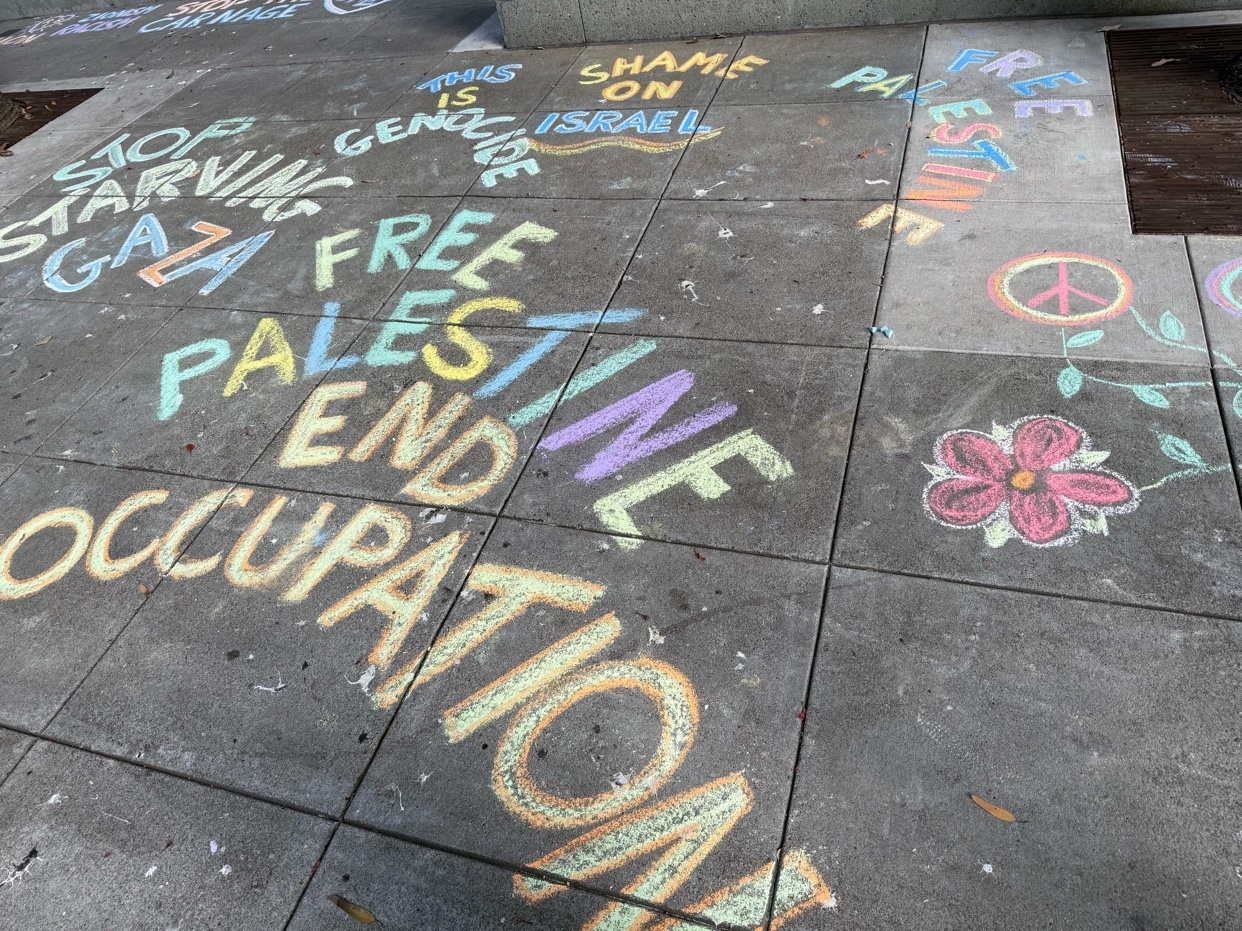 ZIONISM
RACISM
STOP THE
CARNAGE
THIS
IS
GENOCIDE
SHAME
ON
ISRAEL
FREE
PALESTINE
STOP
STARVING
GAZA
FREE
PALESTINE
END
OCCUPATION